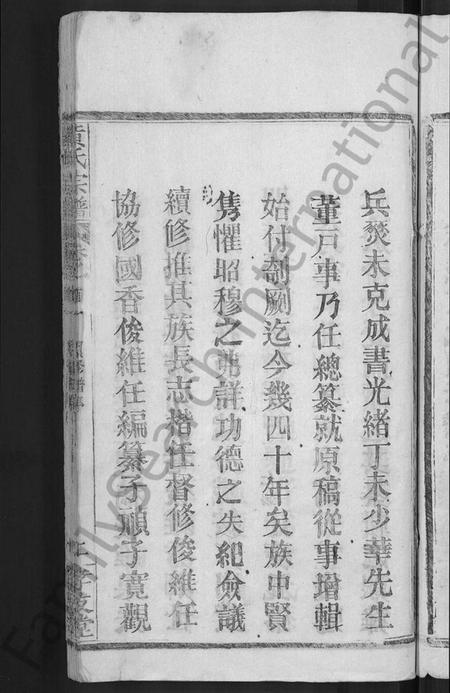 兵燹未克成書光緒丁未少華先生
董戸事乃任總纂就原稿從事增輯
始付剞劂迄今幾四十年矣族中賢
雋懼昭穆之弗詳功德之失紀僉議
續修推其族長志楷任督修俊維任
協修國香俊維任編纂子頑子寛觀
黄氏宗譜
Familysearch International